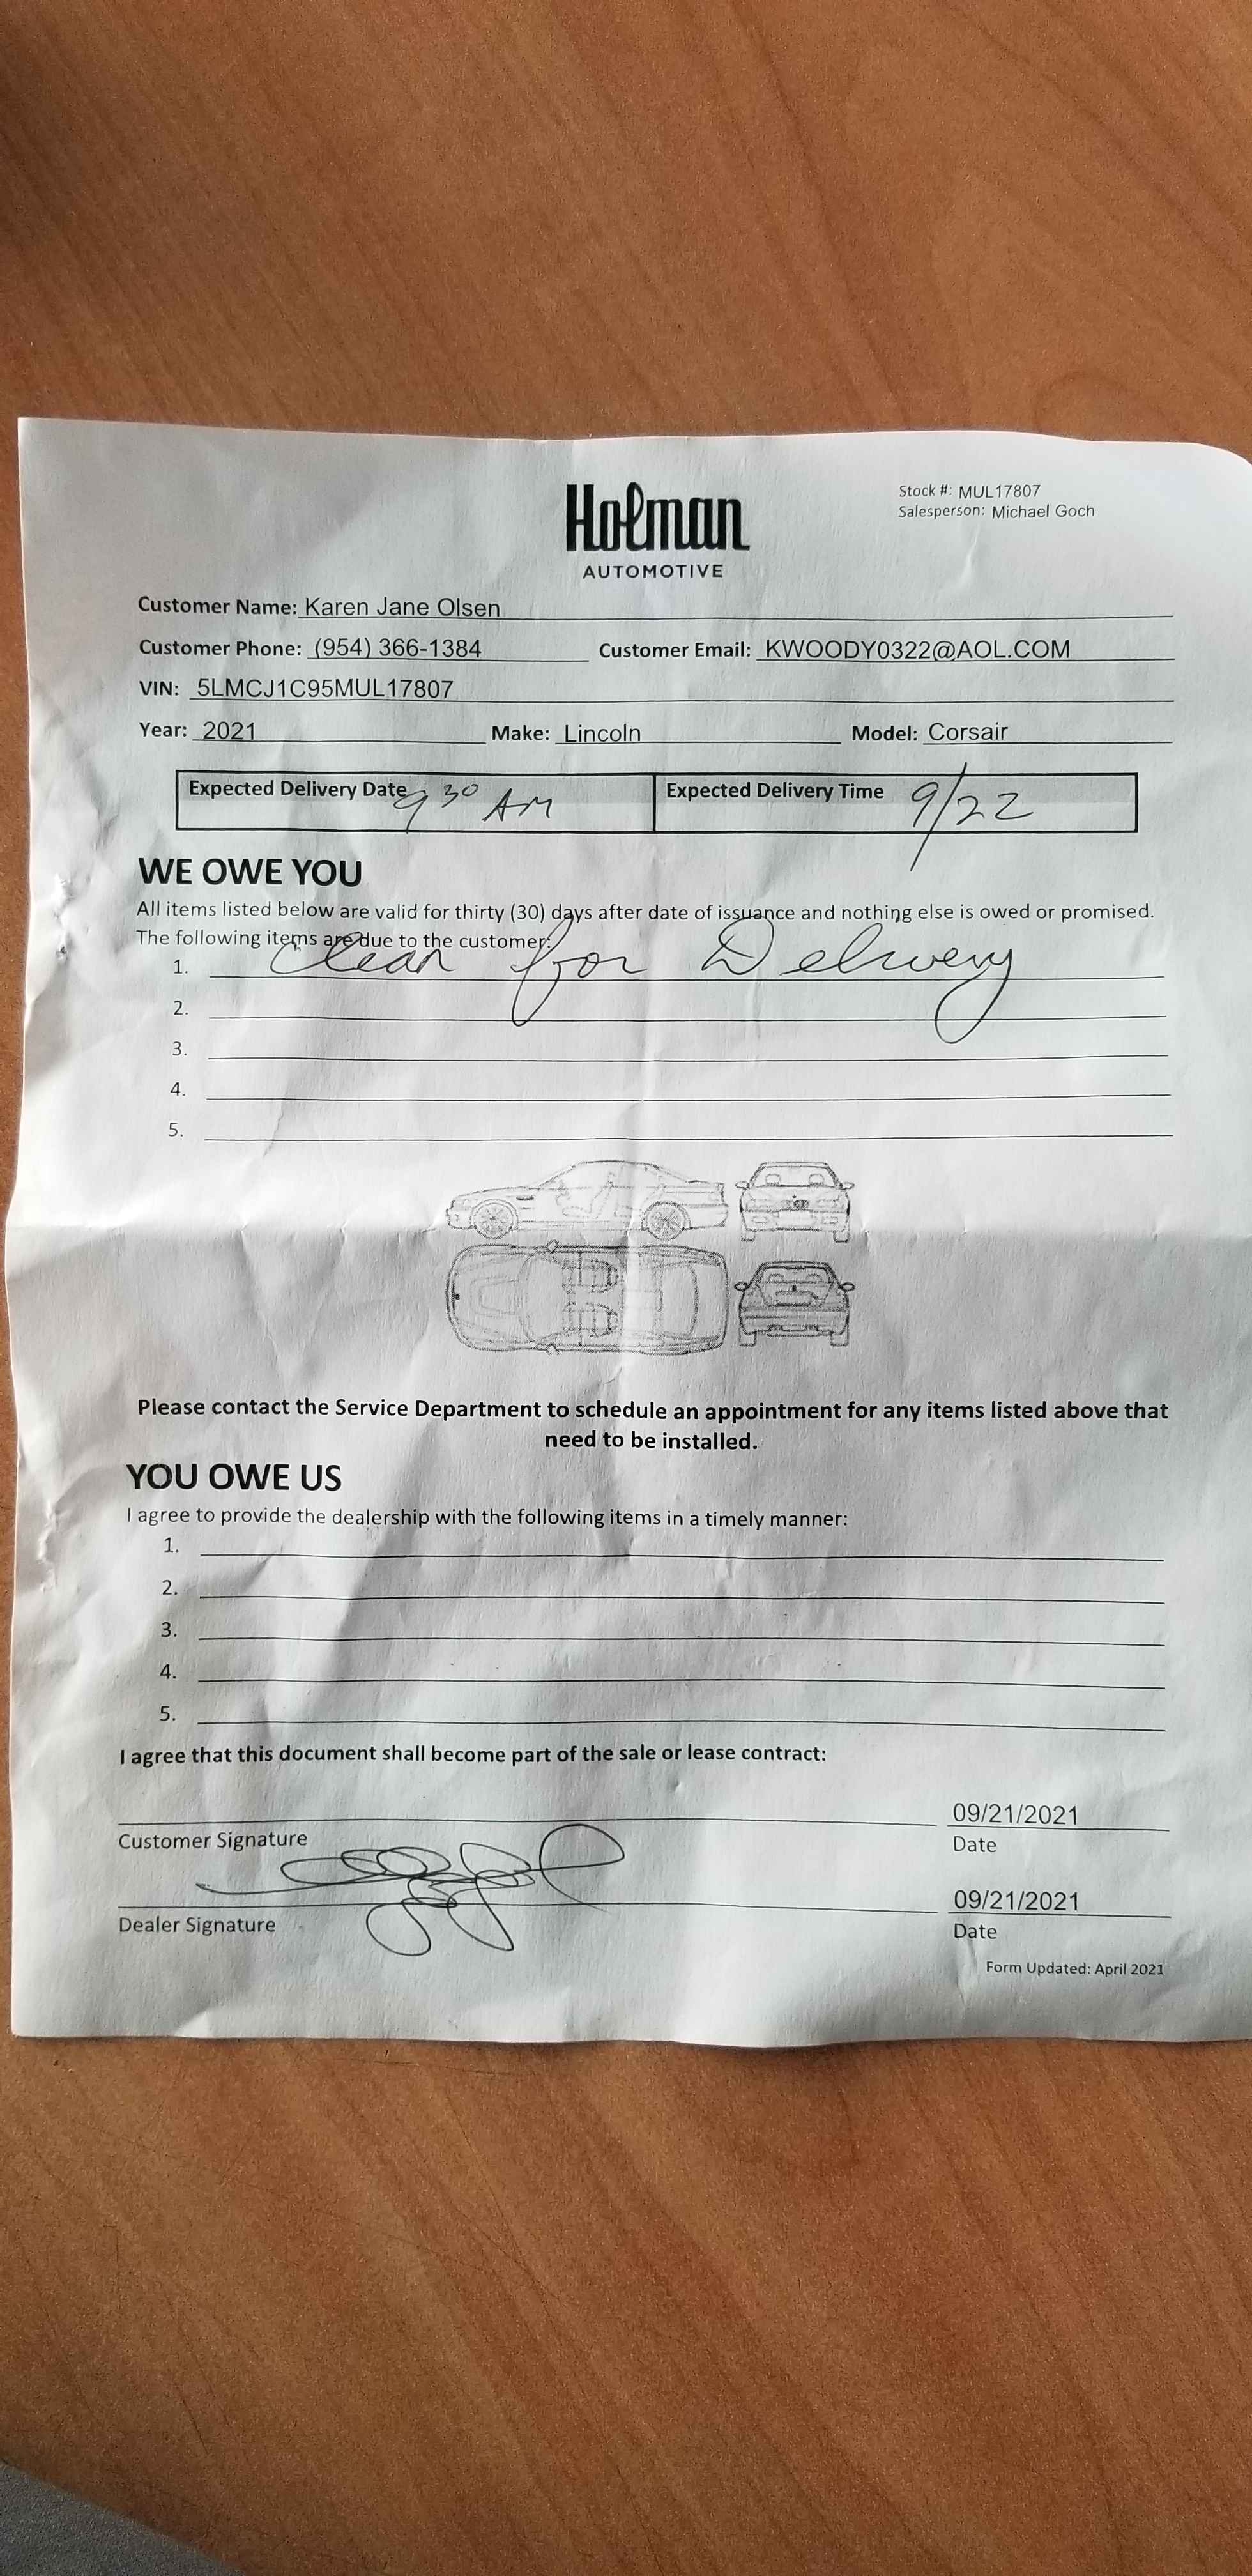 Holman
AUTOMOTIVE
Stock #: MUL17807
Salesperson: Michael Goch
Customer Name: Karen Jane Olsen
Customer Phone: (954) 366-1384 Customer Email: KWOODY0322@AOL.COM
VIN: 5LMCJ1C95MUL17807
Year: 2021 Make: Lincoln Model: Corsair
Expected Delivery Date 9 30 AM Expected Delivery Time 9/22
WE OWE YOU
All items listed below are valid for thirty (30) days after date of issuance and nothing else is owed or promised.
The following items are due to the customer:
1. Clean for Delivery
2.
3.
4.
5.
Please contact the Service Department to schedule an appointment for any items listed above that
need to be installed.
YOU OWE US
I agree to provide the dealership with the following items in a timely manner:
1.
2.
3.
4.
5.
I agree that this document shall become part of the sale or lease contract:
09/21/2021
Customer Signature Date
09/21/2021
Dealer Signature Date
Form Updated: April 2021